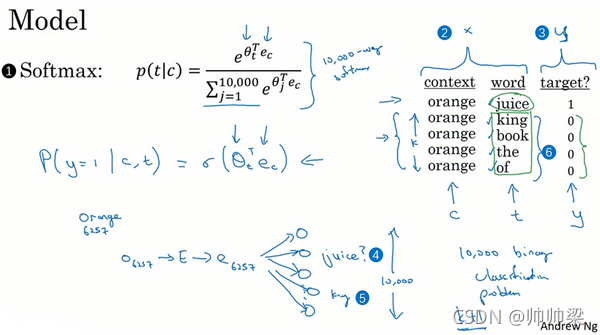 Model
② x
③ y
① Softmax: p(t|c) = e^{θ_t^T e_c} / ∑_{j=1}^{10,000} e^{θ_j^T e_c}
10,000-way
softmax
context word target?
orange juice 1
orange king 0
orange book 0
orange the 0
orange of 0
k
⑥
P(y=1 | c,t) = σ(θ_t^T e_c) ←
c t y
Orange
6257
o_{6257} → E → e_{6257}
juice? ④
king ⑤
10,000
10,000 binary
classification
problem
k+1
CSDN @帅帅梁
Andrew Ng